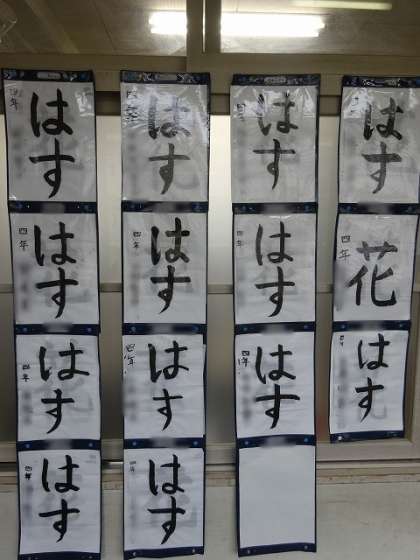 はす
四年
はす
四年
はす
四年
はす
四年
はす
四年
はす
四年
はす
四年
はす
四年
はす
四
はす
四年
はす
四年
はす
花
四年
はす
四